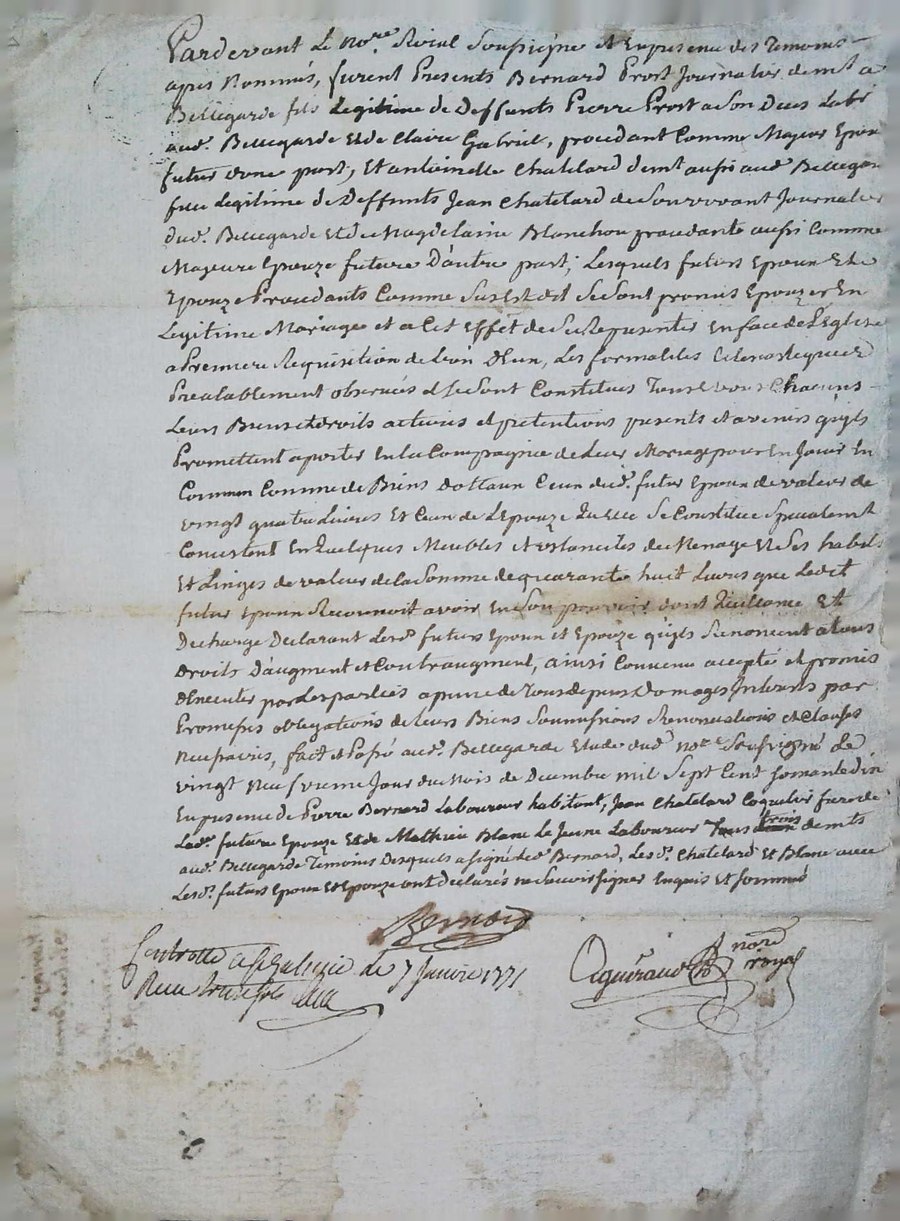 Pardevant Le No.re Roial Soussigné et En presence des Temoins
apres Nommés, furent Presents Bernard Prost Journalier dem.t a
Bellegarde fils Legitime de Deffunts Pierre Prost a son Deces Lab.r
aud. Bellegarde Et de Claire Gabriel, procedant Comme Majeur Epoux
futur d'une part, Et antoinette Chatelard dem.t aussi aud. Bellegarde
fille Legitime de Deffunts Jean Chatelard de Son vivant Journalier
dud. Bellegarde Et de Magdelaine Blanchon procedante aussi Comme
Majeure Epouze future D'autre part; Lesquels futurs Epoux Et
Epouze Procedants Comme Sus Est dit Se Sont promis Epouzer En
Legitime Mariage et a Cet Effét de Se Representer En face de L'Eglise
a Premiere Requisition de Lun D'Eux, Les formalites
Prealablement observées et Se Sont Constitues Tous Chacuns
Leurs Biens et droits actions et pretentions presents et avenirs quils
Promettent aporter En la Compagnie de Leur Mariage pour En Jouir En
Commun Comme de Biens dottaux Ceux dud. futur Epoux de valeur de
vingt quatre Livres Et Ceux de L'Epouze quelle Se Constitue Specialem.t
Concistent En quelques Meubles et ustanciles de Menage Et Ses habits
Et Linges de valeur de la Somme de quarante huit Livres que Ledit
futur Epoux Reconnoit avoir En Son pouvoir dont quittance Et
Decharge Declarant Lesd. futurs Epoux et Epouze quils Renoncent a tous
Droits D'augment et Contraugment, ainsi Convenu accepté et promis
dExecuter par Les parties a peine de Tous depens Domages Interests par
Promesses obligations de Leurs Biens Soumissions Renonciations et Clauses
fait et Passé aud. Bellegarde Etude dud. No.re Soussigné Le
vingt Neufvieme Jour du Mois de Decembre mil Sept Cent Soixante dix
En presence de Pierre Bernard Laboureur habitant, Jean Chatelard frere de
Lad. future Epouze Et de Mathieu Blanc Le Jeune Laboureur Tous trois dem.ts
aud. Bellegarde Temoins Desquels a signé led. Bernard, Lesd. Chatelard Et Blanc avec
Lesd. futurs Epoux Et Epouze ont déclarés ne Scavoir signer Enquis Et Sommés
Bernard
Controllé le 7 Janvier 1771
Reçu
no.re
royal